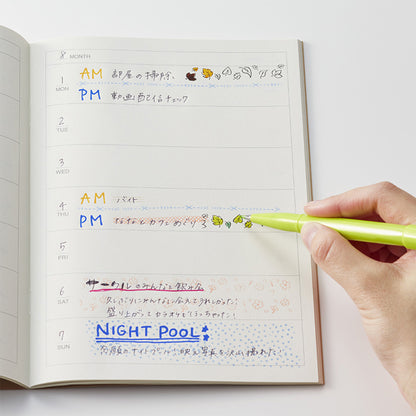 8 MONTH
1 AM 部屋の掃除、
MON PM 動画配信チェック
2
TUE
3
WED
4 AM バイト
THU PM ななとカフェめぐり
5
FRI
6 サークルのみんなと飲み会
SAT 久しぶりにみんなに会えてうれしかった!
盛り上がってカラオケも行っちゃった!
7 NIGHT POOL
SUN 念願のナイトプール!映え写真を沢山撮れた!